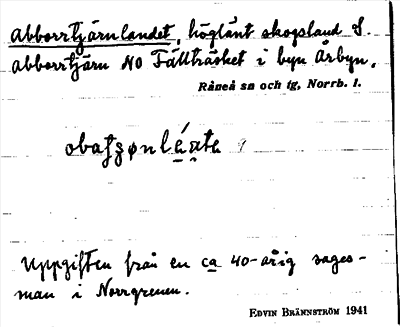 Abborrtjärnlandet, höglänt skogsland S.
Abborrtjärn NO Fällträsket i byn Årbyn.
Råneå sn och tg, Norrb. l.
Uppgiften från en ca 40-årig sages-
man i Norrgrenen.
Edvin Brännström 1941